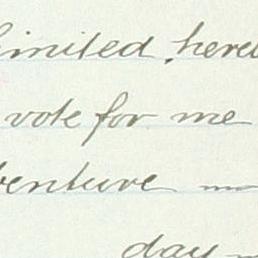 limited, here
vote for me
benture
day